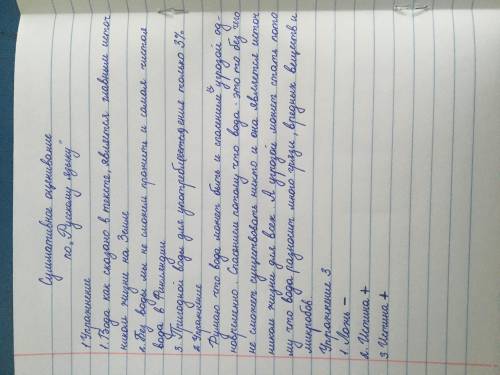 Суммативное оценивание
по „Русскому языку"
1 Упражнение
1. Вода как сказано в тексте, является главным источ
ником жизни на Земле
2. Без воды мы не сможем прожить и самая чистая
вода в Финляндии
3. Пригодной воды для употребления только 3%
2 Упражнение
Думаю что вода может быть и спасением и угрозой од-
новременно. Спасением потому что вода - это то без чего
не сможет существовать никто и она является источ
ником жизни для всех. А угрозой может стать пото
му что вода разносит много грязи, вредных веществ и
микробов
Упражнение 3
1. Ложь -
2. Истина +
3. Истина +